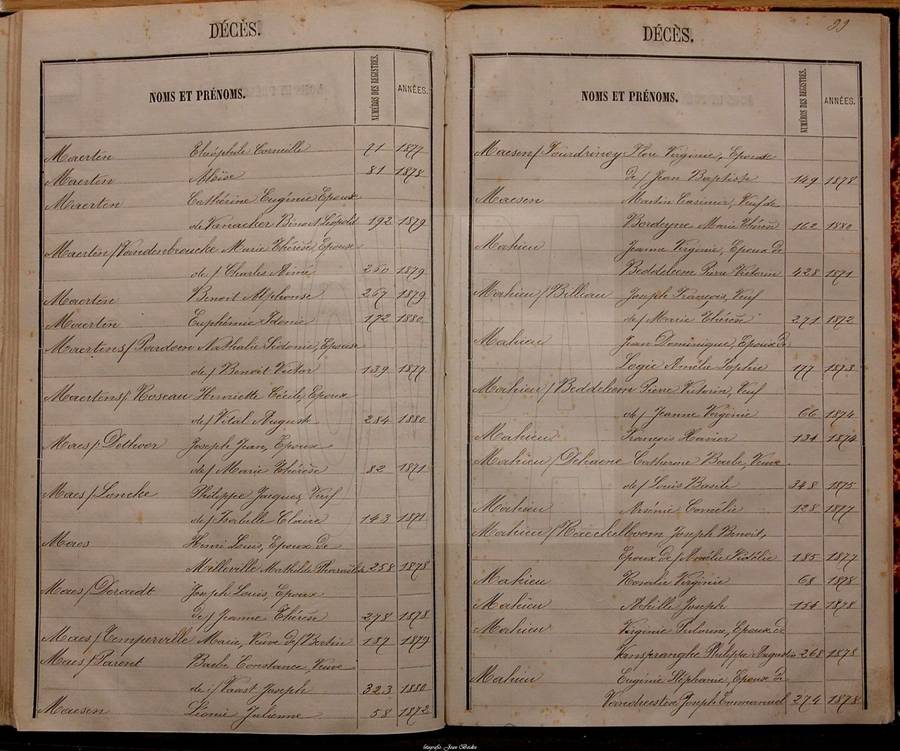 DÉCÈS.
NOMS ET PRÉNOMS.
NUMÉROS DES REGISTRES.
ANNÉES.
Maerten Théophile Corneille 71 1877
Maerten Aloïse 81 1878
Maerten Cathérine Eugénie Epouse
de Vanacker Benoit Léopold 192 1879
Maerten/Vandenbroucke Marie Thérèse, Epouse
de/ Charles Aimé 250 1879
Maerten Benoit Alphonse 257 1879
Maerten Euphémie Idonie 172 1880
Maertens/ Nathalie Sidonie, Epouse
de/ Benoit Victor 139 1877
Maertens/Roseau Henriette Cécile, Epouse
de/ Vital August 284 1880
Maes/ Joseph Jean, Epoux
de/ Marie Thérèse 82 1871
Maes/Loncke Philippe Jacques, Veuf
de/ Isabelle Claire 143 1871
Maes Henri Louis, Epoux de
Milleville Mathilde 258 1878
Maes/Deraedt Joseph Louis, Epoux
de/ Jeanne Thérèse 278 1878
Maes/Temperville Marie, Veuve de/ Bertin 187 1879
Maes/Parent Barbe Constance, Veuve
de/ Vaast Joseph 323 1880
Maesen Léonie Julienne 58 1872
DÉCÈS.
NOMS ET PRÉNOMS.
NUMÉROS DES REGISTRES.
ANNÉES.
Maesen/ Flore Virginie, Epouse
de/ Jean Baptiste 149 1878
Maesen Martin Casimir, Veuf de
Bordeyne Marie Thérèse 162 1880
Mahieu Jeanne Virginie, Epouse de
Beddeleem Pierre Victorin 428 1871
Mahieu/Billiau Joseph François, Veuf
de/ Marie Thérèse 271 1872
Mahieu Jean Dominique, Epoux de
Logie Amélie Sophie 177 1873
Mahieu/Beddeleem Pierre Victorin, Veuf
de/ Jeanne Virginie 66 1874
Mahieu François Xavier 134 1874
Mahieu/Dehaene Catherine Barbe, Veuve
de/ Louis Basile 348 1875
Mahieu Arsénie Cornélie 128 1877
Mahieu/ Joseph Benoit,
Epoux de/ Amélie 185 1877
Mahieu Rosalie Virginie 68 1878
Mahieu Achille Joseph 154 1878
Mahieu Virginie Philomène, Epouse de
Vanspranghe Philippe Augustin 268 1878
Mahieu Eugénie Stéphanie, Epouse de
Joseph Emmanuel 274 1878